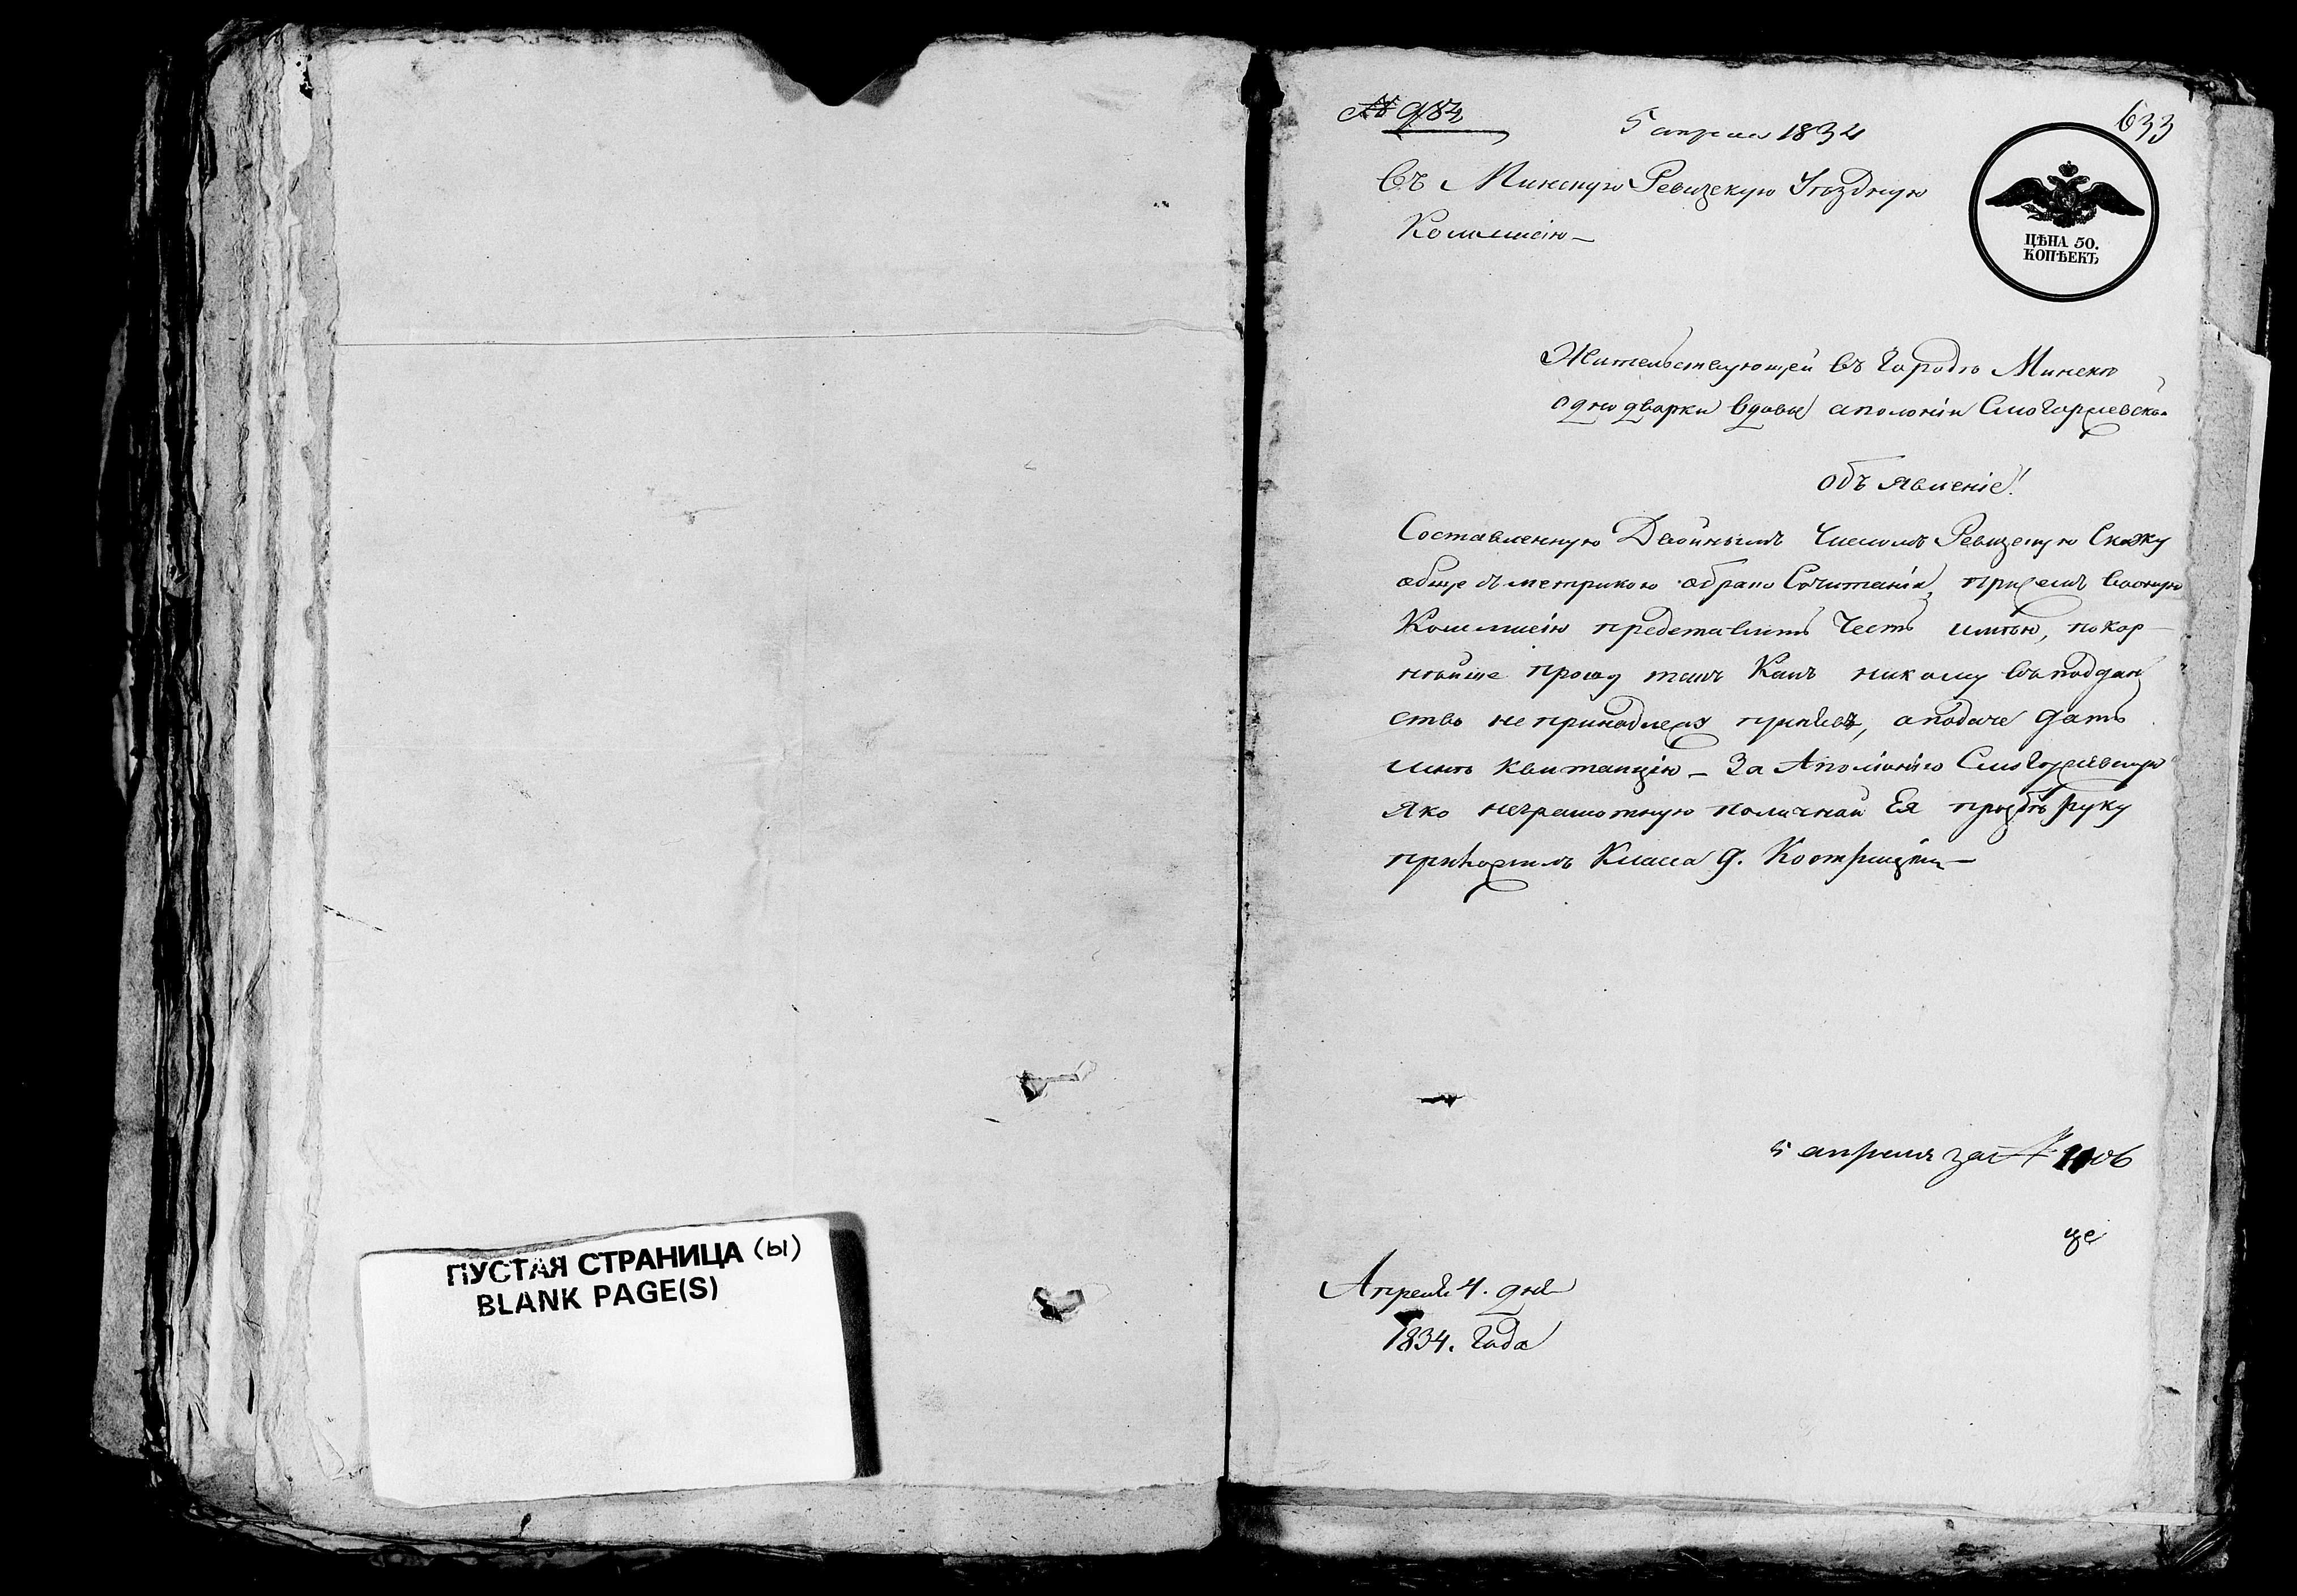 ПУСТАЯ СТРАНИЦА (ы)
BLANK PAGE(S)
№ 984
5 апреля 1834
633
Въ Минскую Ревизскую Уѣздную
Коммисію —
ЦѢНА 50.
КОПѢЕКЪ
Жительствующей въ городѣ Минскѣ
однодворки вдовы аполоніи
объявленіе!
Составленную Двойнымъ Числомъ Ревизскую Скаску
обще съ метрикою обрако Сочитанія, при семъ
Коммисію представить Честь имѣю, покор-
нѣйше прошу такъ Какъ никому въ поддан
ство не принадлежа принять, а подаче дать
мнѣ квитанцію — За Аполонію
яко неграмотную поличной Ея прозбѣ руку
приложилъ Класса
5 апреля за № 1106
Апреля 4. дня
1834. года